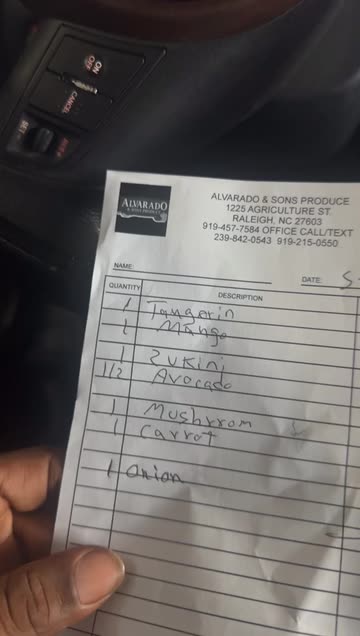 ON
OFF
CANCEL
SET
ALVARADO
& SONS PRODUCE
ALVARADO & SONS PRODUCE
1225 AGRICULTURE ST.
RALEIGH, NC 27603
919-457-7584 OFFICE CALL/TEXT
239-842-0543 919-215-0550
NAME: DATE: 5-
QUANTITY DESCRIPTION
1 Tangerin
1 Mango
1 Zukini
1/2 Avocado
1 Mushrrom
1 Carrot
1 onion